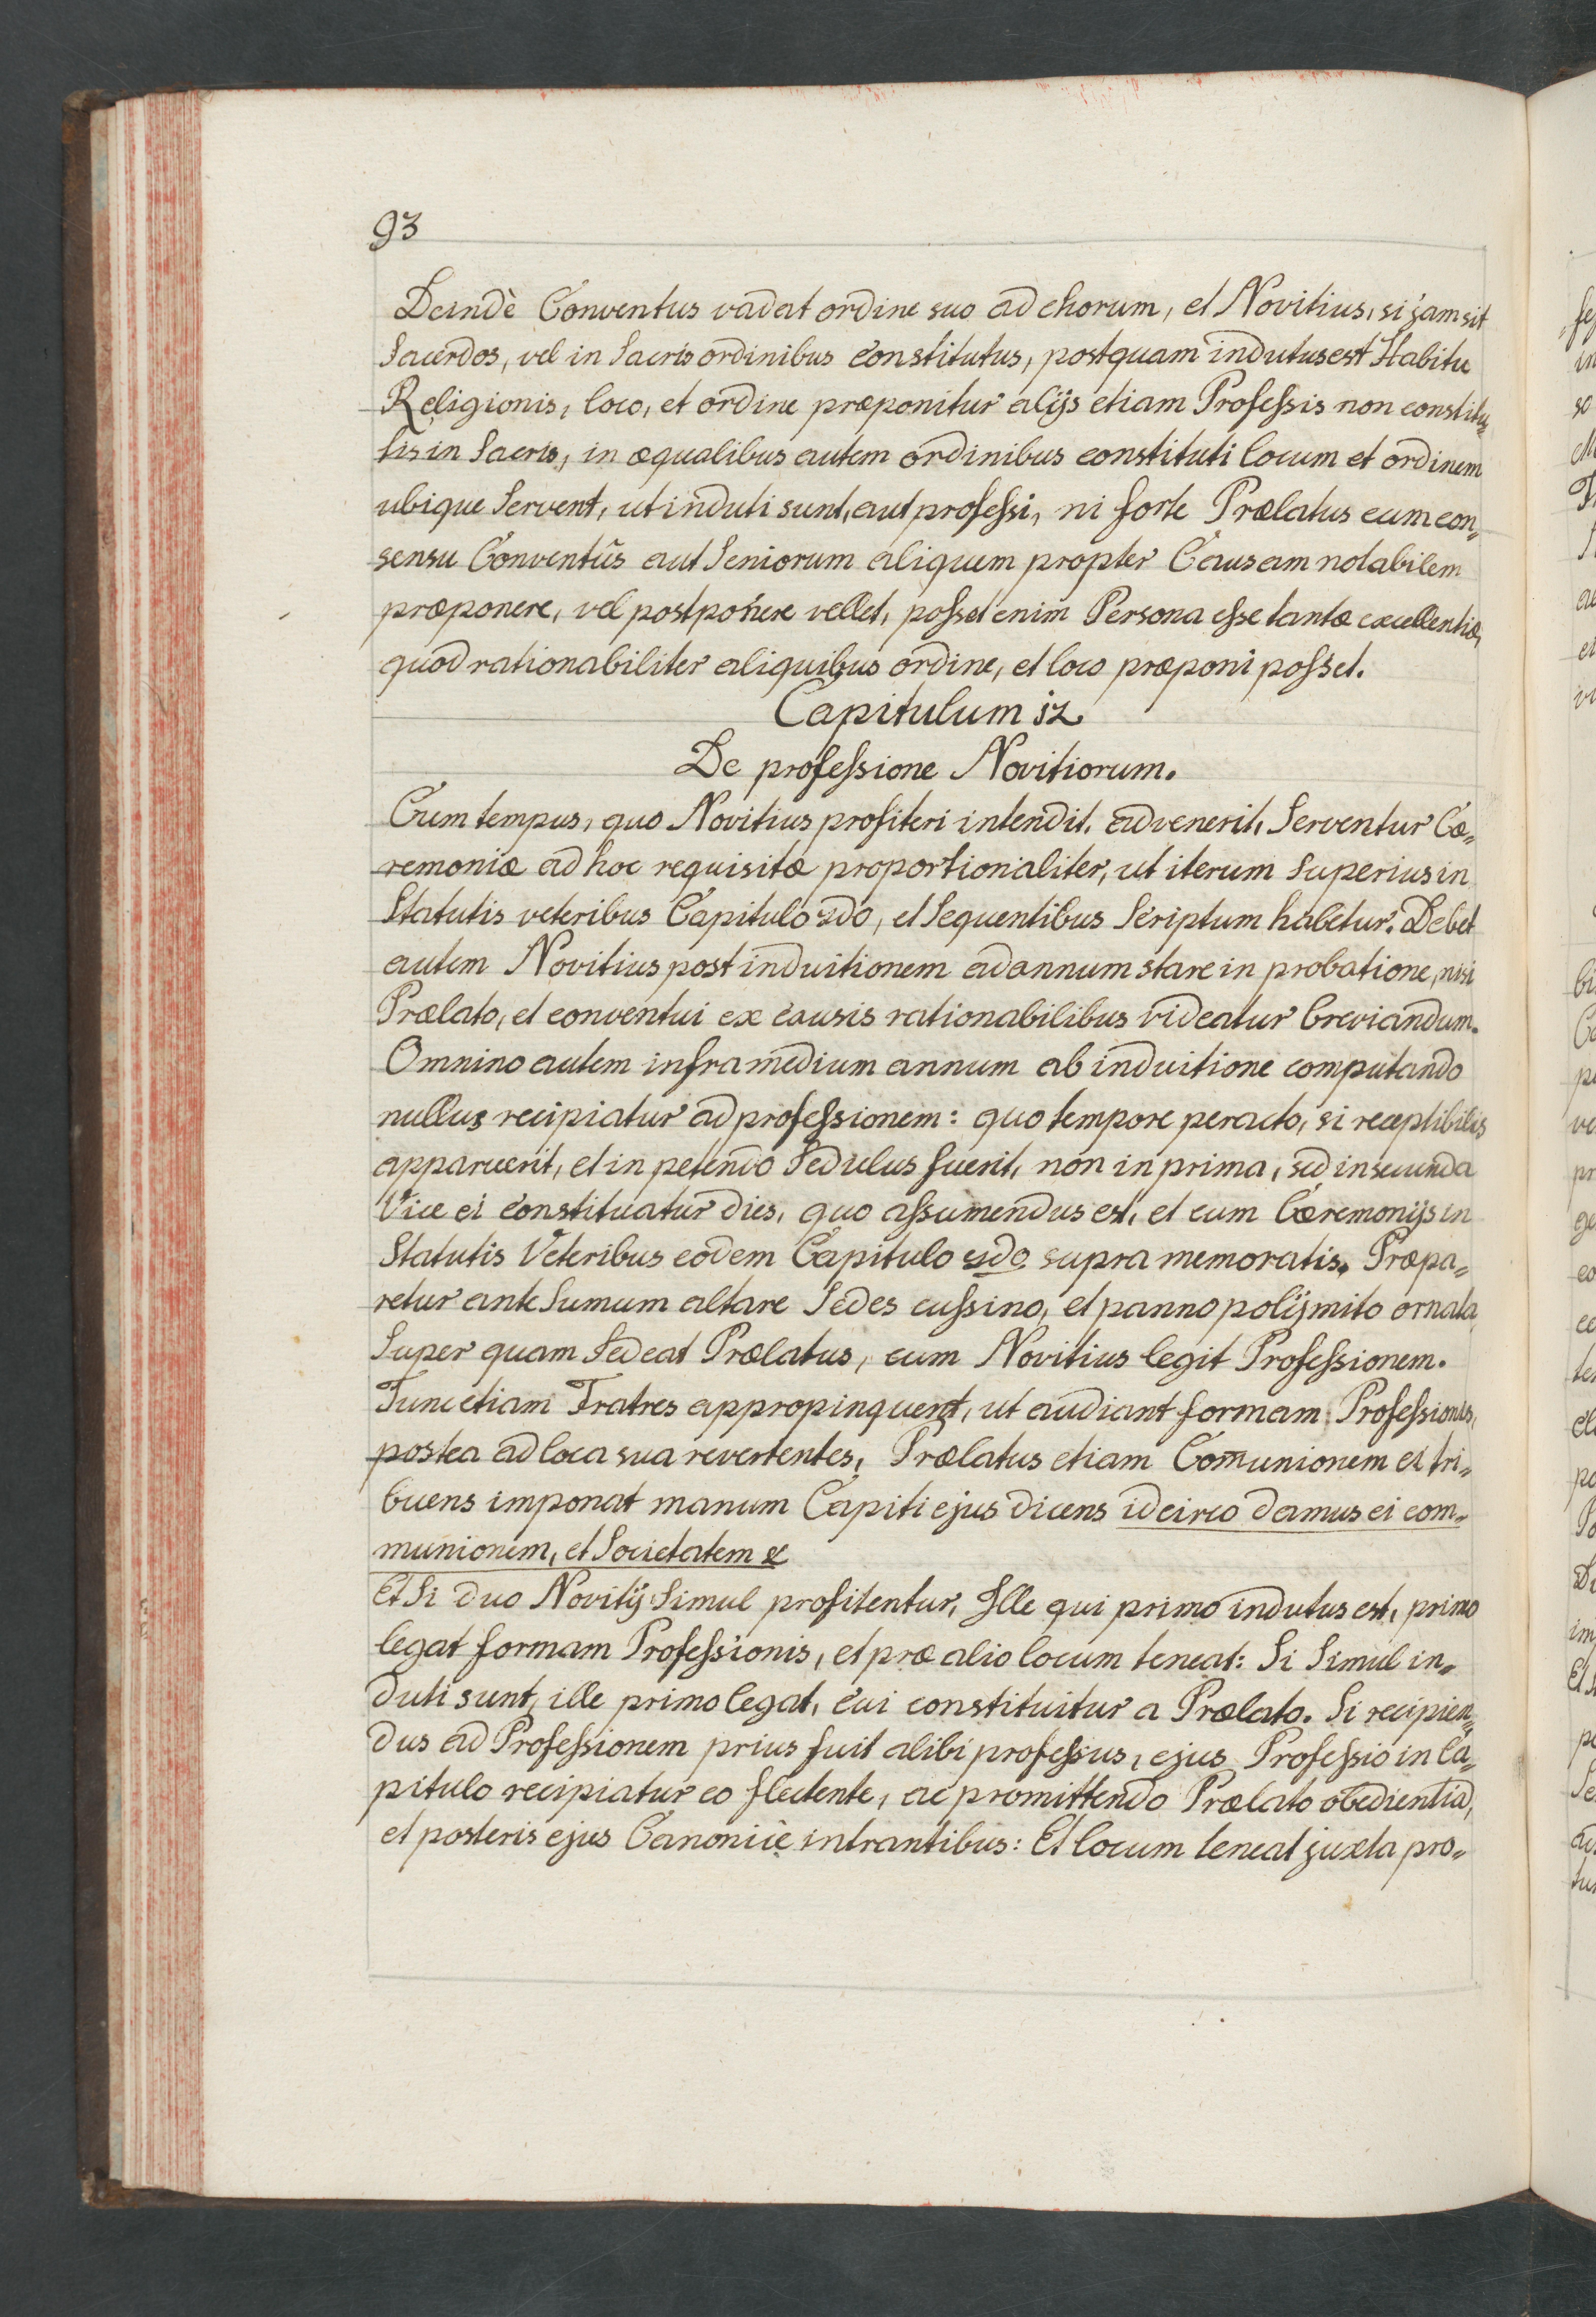 93
Deindè Conventus vadat ordine suo ad chorum, et Novitius, si jam sit
Sacerdos, vel in Sacris ordinibus constitutus, postquam indutus est Habitu
Religionis, loco, et ordine præponitur alijs etiam Professis non constitu„
tis in Sacris, in æqualibus autem ordinibus constituti locum et ordinem
ubique Servent, ut induti sunt, aut professi, ni forte Prælatus cum con„
sensu Conventûs aut Seniorum aliquem propter Causam notabilem
præponere, vel postponere vellet, posset enim Persona esse tantæ excellentiæ,
quod rationabiliter aliquibus ordine, et loco præponi posset.
Capitulum 12
De professione Novitiorum.
Cum tempus, quo Novitius profiteri intendit, advenerit, Serventur Cæ„
remoniæ ad hoc requisitæ proportionaliter, ut iterum superius in
Statutis veteribus Capitulo 2do, et Sequentibus Scriptum habetur. Debet
autem Novitius post induitionem ad annum stare in probatione, nisi
Prælato, et conventui ex causis rationabilibus videatur breviandum.
Omnino autem infra medium annum ab induitione computando
nullus recipiatur ad professionem: quo tempore peracto, si receptibilis
apparuerit, et in petendo Sedulus fuerit, non in prima, sed in secunda
Vice ei constituatur dies, quo assumendus est, et cum Cæremonijs in
Statutis Veteribus eodem Capitulo 2do supra memoratis. Præpa„
retur ante Sumum altare Sedes cussino, et panno polijmito ornata,
Super quam Sedeat Prælatus, cum Novitius legit Professionem.
Tunc etiam Fratres appropinquent, ut audiant formam Professionis,
postea ad loca sua revertentes, Prælatus etiam Com̄unionem ei tri„
buens imponat manum Capiti ejus dicens idcirco damus ei com„
munionem, et Societatem &
Et Si duo Novitij Simul profitentur, Ille qui primo indutus est, primo
legat formam Professionis, et præ alio locum teneat: Si Simul in„
duti sunt, ille primo legat, cui constituitur a Prælato. Si recipien„
dus ad Professionem prius fuit alibi professus, ejus Professio in Ca„
pitulo recipiatur eo flectente, ac promittendo Prælato obedientiā,
et posteris ejus Canonicè intrantibus: Et locum teneat juxta pro„